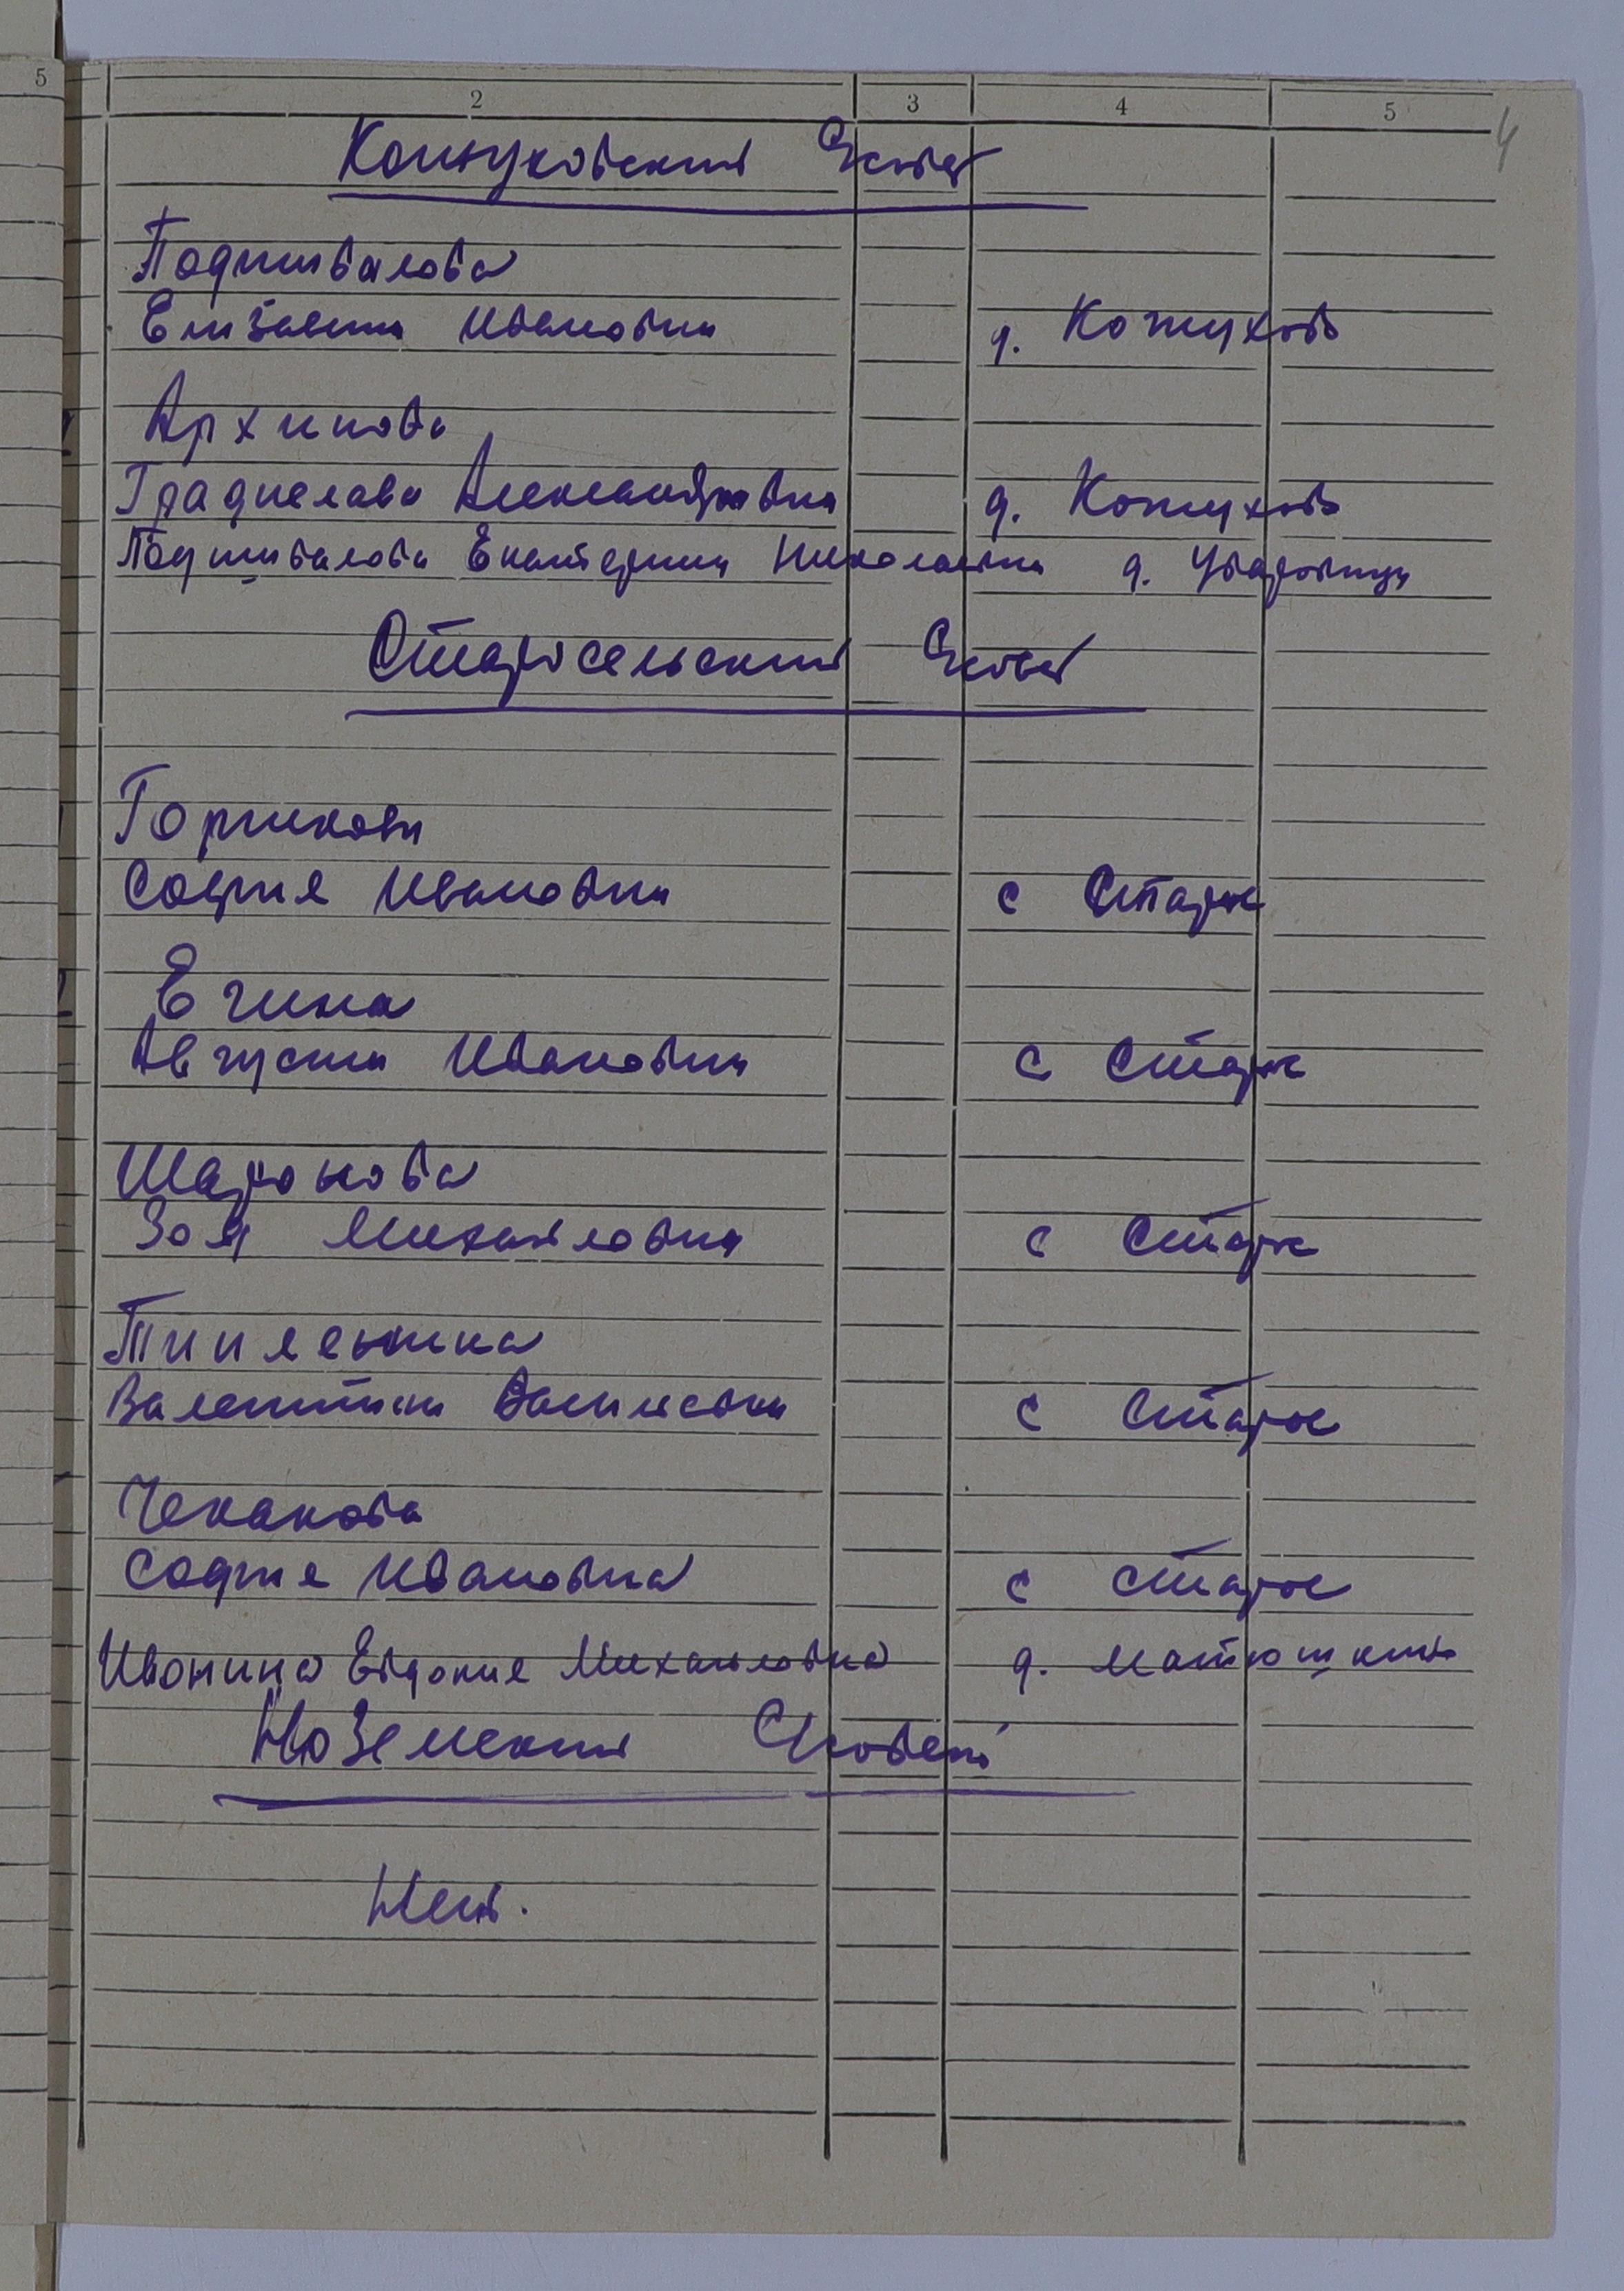 5
2 3 4 5
4
Кожуховский С/совет
Подшивалова
Елизавета Ивановна д. Кожухово
Архипова
Градислава Александровна д. Кожухово
Подшивалова Екатерина Николаевна д. Уваровица
Старосельский С/совет
Горшкова
София Ивановна с Старое
Егина
Августа Ивановна с Старое
Шаронова
Зоя Михайловна с Старое
Валентина Васильевна с Старое
Чеканова
София Ивановна с Старое
Ивонина Евдокия Михайловна д. Матюшкино
С/совет
Нет.